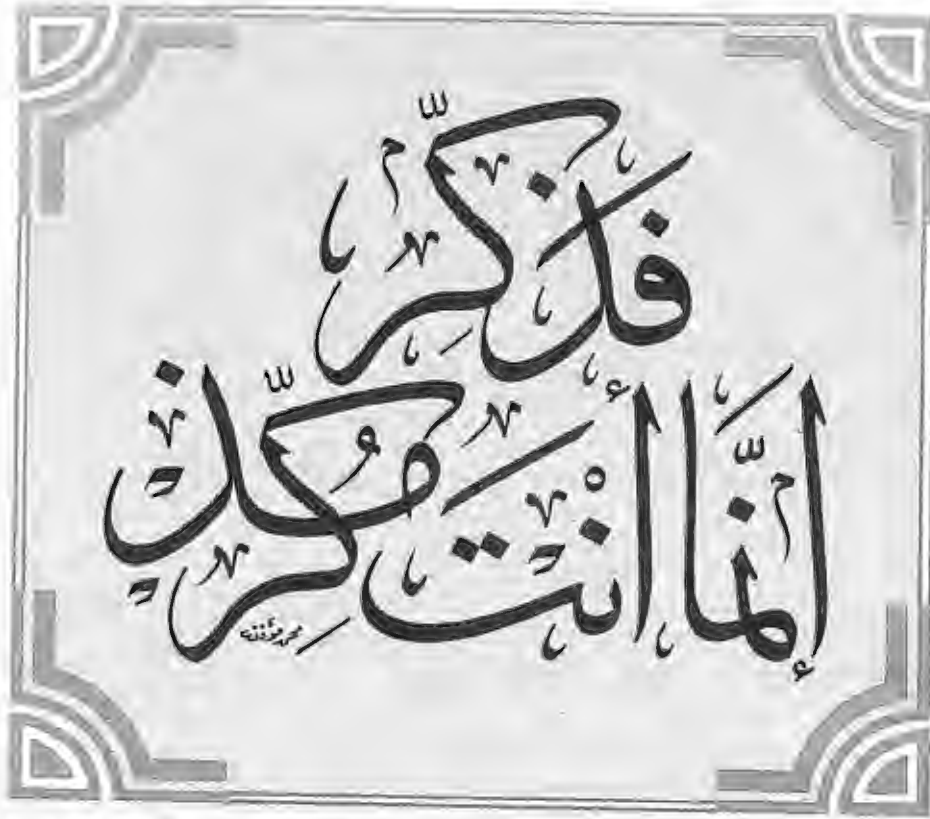 فَذَكِّرْ
إِنَّمَا أَنْتَ مُذَكِّرٌ